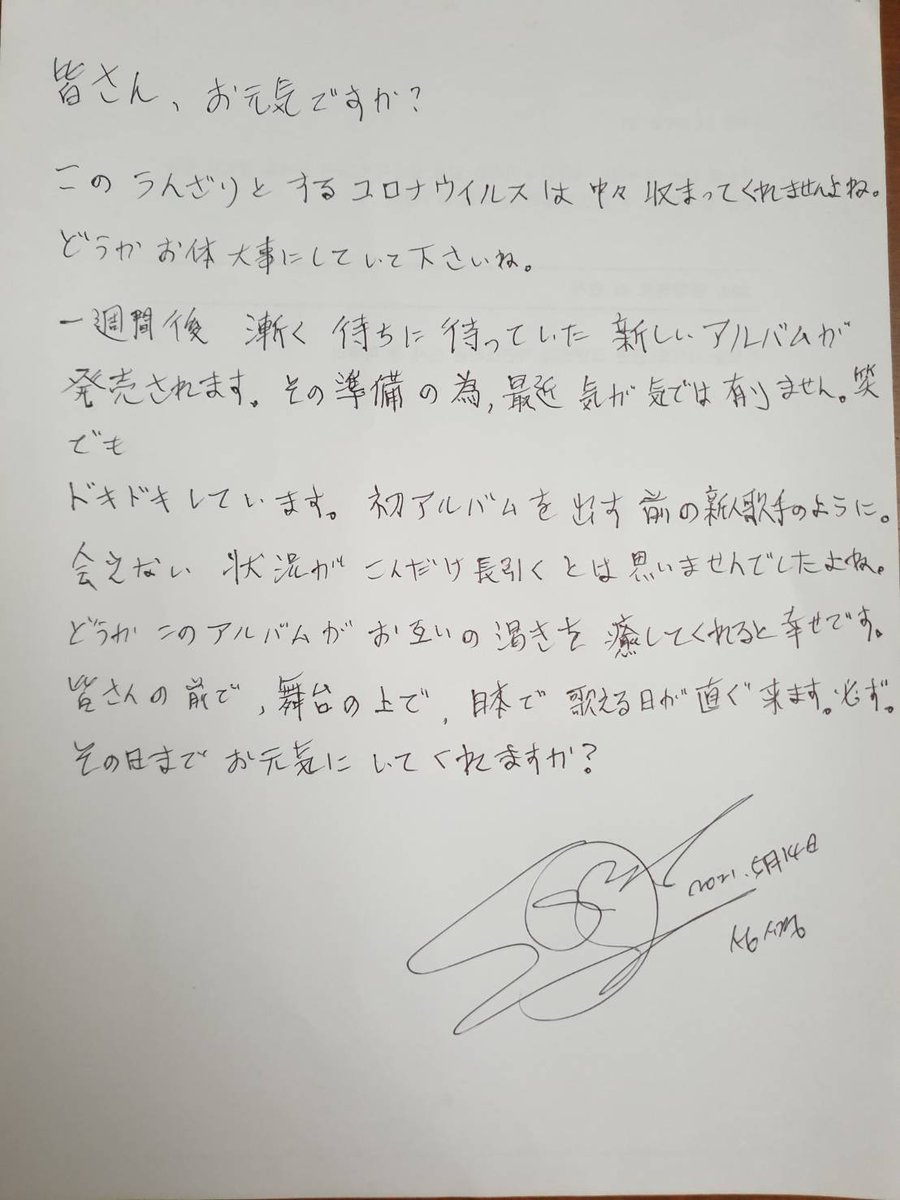 皆さん、お元気ですか?
このうんざりとするコロナウイルスは中々収まってくれませんよね。
どうかお体大事にしていて下さいね。
一週間後 漸く待ちに待っていた新しいアルバムが
発売されます。その準備の為,最近気が気では有りません。笑
でも
ドキドキしています。初アルバムを出す前の新人歌手のように。
会えない状況がこんだけ長引くとは思いませんでしたよね。
どうかこのアルバムがお互いの渇きを癒してくれると幸せです。
皆さんの前で,舞台の上で,日本で歌える日が直ぐ来ます。必ず。
その日までお元気にいてくれますか?
2021.5月14日